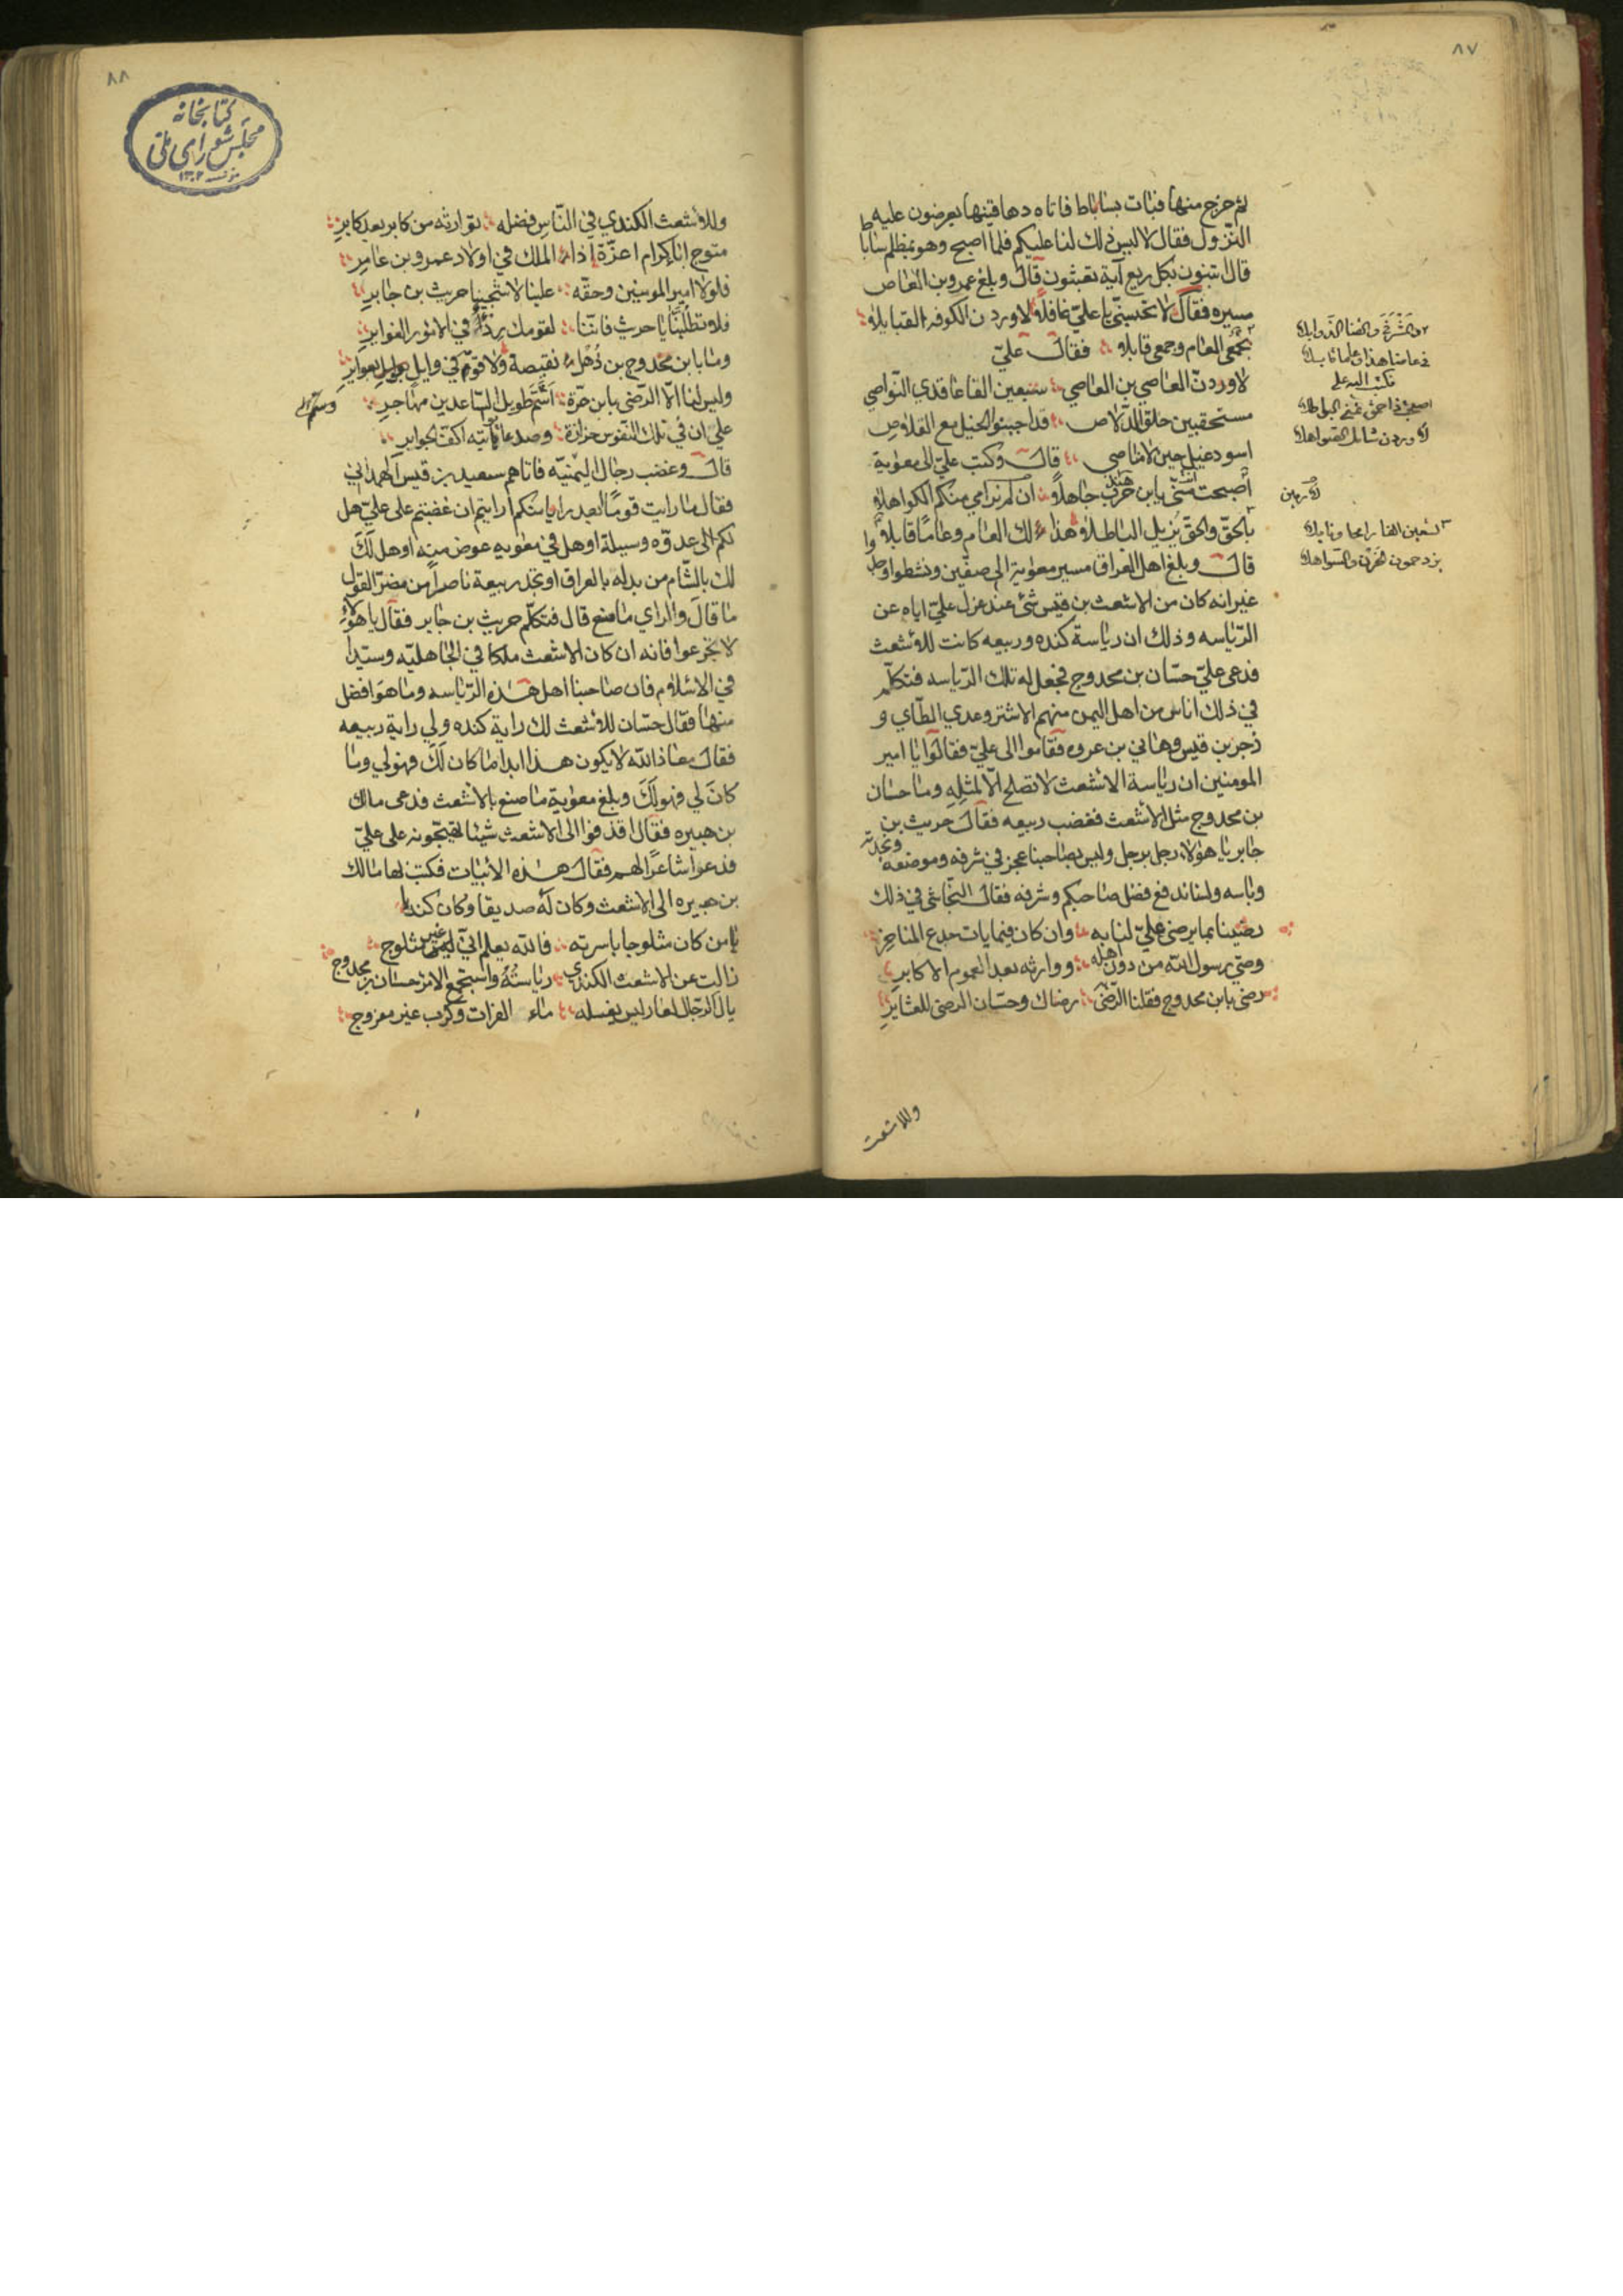 ٨٧
ثم خرج منها فبات بساباط فاتاه دهاقينها يعرضون عليه
النزول فقال لا ليس ذلك لنا عليكم فلما اصبح وهو بمظلم ساباط
قال اتبنون بكل ريع آية تعبثون قال وبلغ عمرو بن العاص
مسيره فقال لا تحسبنّي يا عليّ غافلا لاوردن الكوفه القبايلا
بجمعي العام وجمعي قابلا فقال عليّ
لاوردنّ العاصي بن العاصي سبعين الفا عاقدي النّواصي
مستحقبين حلق الدّلاص قد اجنبوا الخيل مع القلاص
اسود غيل حين لا مناصي قال وكتب عليّ الى معوية
اصبحت منّي يا ابن حرب جاهلا ان لم نرامي منكم الكواهلا
بالحقّ والحقّ يزيل الباطلا هذا لك العام وعاما قابلا
قال وبلغ اهل العراق مسير معوية الى صفّين ونشطوا وجدّوا
غير انه كان من الاشعث بن قيس شئ عند عزل عليّ اياه عن
الرّياسه وذلك ان رياسة كنده وربيعه كانت للاشعث
فدعى عليّ حسّان بن محدوج فجعل له تلك الرّياسه فتكلّم
في ذلك اناس من اهل اليمن منهم الاشتر وعدي الطّاي و
زحر بن قيس وهاني بن عروه فقاموا الى عليّ فقالوا يا امير
المومنين ان رياسة الاشعث لا تصلح الّا لمثله وما حسان
بن محدوج مثل الاشعث فغضب ربيعه فقال حريث بن
جابر يا هؤلاء رجل برجل وليس بصاحبنا عجز في شرفه وموضعه ونجدته
وباسه ولسنا ندفع فضل صاحبكم وشرفه فقال النّجاشي في ذلك
رضينا بما يرضى عليّ لنا به وان كان فيما يات جدع المناخر
وصيّ رسول الله من دون اهله ووارثه بعد العموم الاكابر
رضى بابن محدوج فقلنا الرّضى رضاك وحسّان الرضى للعشاير
وللاشعث
والمشرفي والقنا الذّوابلا
في عامنا هذا وعاما قابلا
فكتب اليه علي
٨٨
كتابخانه
مجلس شورای ملی
١٣٠٢
وللاشعث الكندي في النّاس فضله توارثه من كابر بعد كابر
متوج اباء كرام اعزّة اذا الملك في اولاد عمرو بن عامر
فلولا امير المومنين وحقّه علينا لاشجينا حريث بن جابر
فلا تطلبنّا يا حريث فاننا لقومك ردء في الامور الغواير
وما بابن محدوج بن ذهل نقيصة ولا قومه في وايل بعواير
وليس لنا الّا الرّضى بابن حرّة اشمّ طويل السّاعدين مهاجر
على ان في تلك النّفوس حزازة وصدعا يؤتيه اكفّ الجوابر
قال وغضب رجال اليمنيّه فاتاهم سعيد بن قيس الهمداني
فقال ما رايت قوما ابعد رايا منكم ارايتم ان غضبتم على عليّ هل
لكم الى عدوّه وسيلة او هل في معويه عوض منه او هل لك
لك بالشّام من بدله بالعراق او تجد ربيعة ناصرا من مضر القول
ما قال والراي ما صنع قال فتكلّم حريث بن جابر فقال يا هؤلاء
لا تجزعوا فانه ان كان الاشعث ملكا في الجاهليّه وسيّدا
في الاسلام فان صاحبنا اهل هذه الرّياسه وما هو افضل
منها فقال حسّان للاشعث لك راية كنده ولي راية ربيعه
فقال معاذ الله لا يكون هذا ابدا ما كان لك فهو لي وما
كان لي فهو لك وبلغ معوية ما صنع بالاشعث فدعى مالك
بن هبيره فقال اقذفوا الى الاشعث شيئا تهيّجونه على عليّ
فدعوا شاعرا لهم فقال هذه الابيات فكتب بها مالك
بن هبيره الى الاشعث وكان له صديقا وكان كنديا
يا من كان مثلوجا باسرته فالله يعلم اني غير مثلوج
زالت عن الاشعث الكندي رياسته واستجمع الامر حسان بن محدوج
يال الرّجال لعار ليس يغسله ماء الفرات وكرب غير مفروج